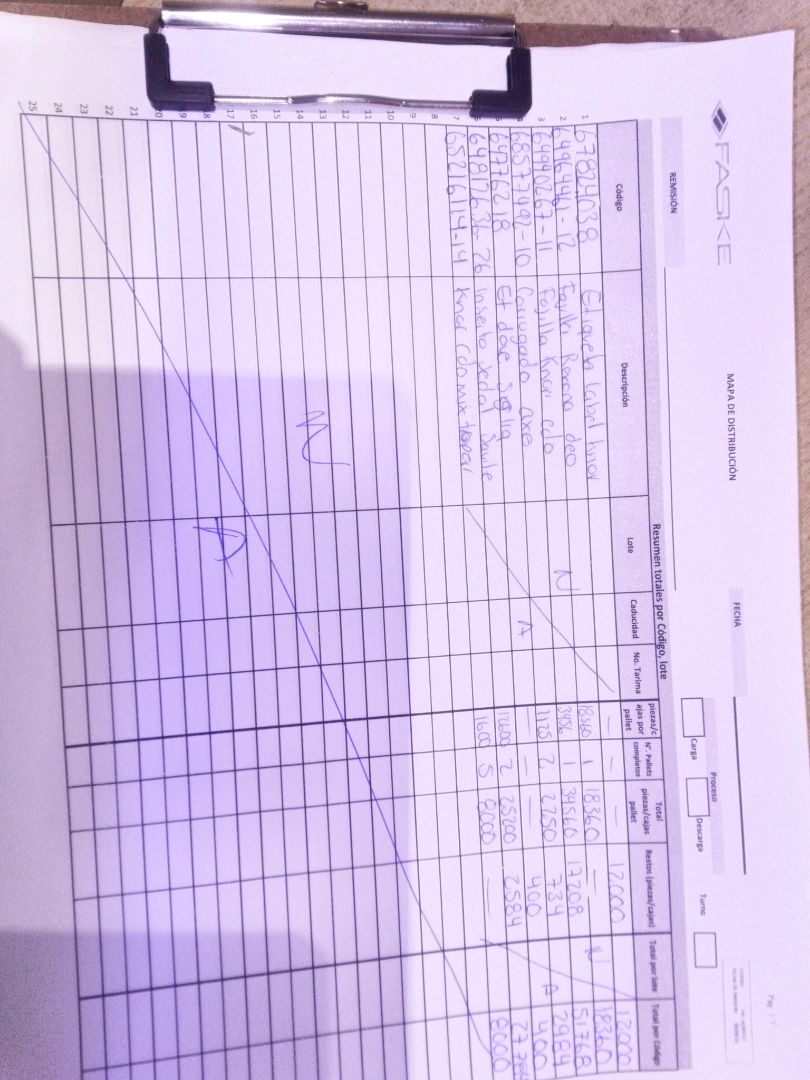 FASKE
MAPA DE DISTRIBUCIÓN
Pag. 1/1
REMISIÓN
FECHA
Proceso
Carga
Descarga
Turno
Resumen totales por Código, lote
Código Descripción Lote Caducidad No. Tarima piezas/cajas por pallet N°. Pallets completos Total piezas/cajas pallet Restos (piezas/cajas) Total por lote Total por Código
1 67824038 Etiqueta label knor — — — 12000 12000
2 64964461-12 deo 18360 1 18360 — 18360
3 64940267-11 Fajilla Knor cdo 1 34560 17208 51768
4 68577492-10 Corrugado axe 1125 2 2250 734 2984
5 64776218 Et doe — — — 400 400
6 64812636-26 Inserto Sedal 12600 2 25200 2584 27784
7 65216114-14 Knor cdo mix 1600 5 8000 — 8000
N A
N A
8
9
10
11
12
13
14
15
16
17
18
19
20
21
22
23
24
25
N
A